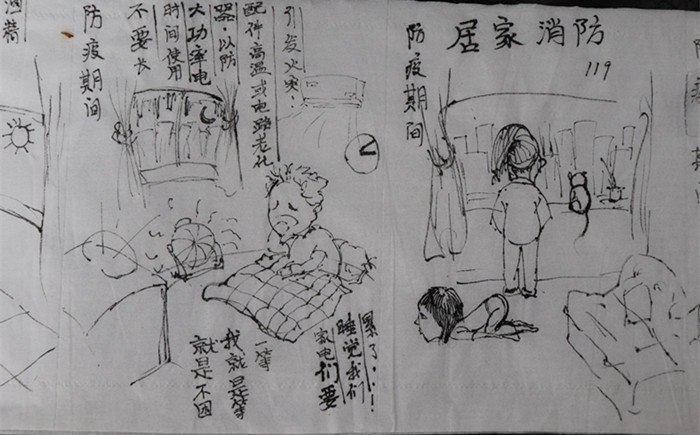 酒精
防疫期间
不要长
时间使用
大功率电
器,以防
配件高温或电路老化
引发火灾!
就是不困
我就是等
一等
家电们要
睡觉我们
累了..!
防疫期间
居家消防
119